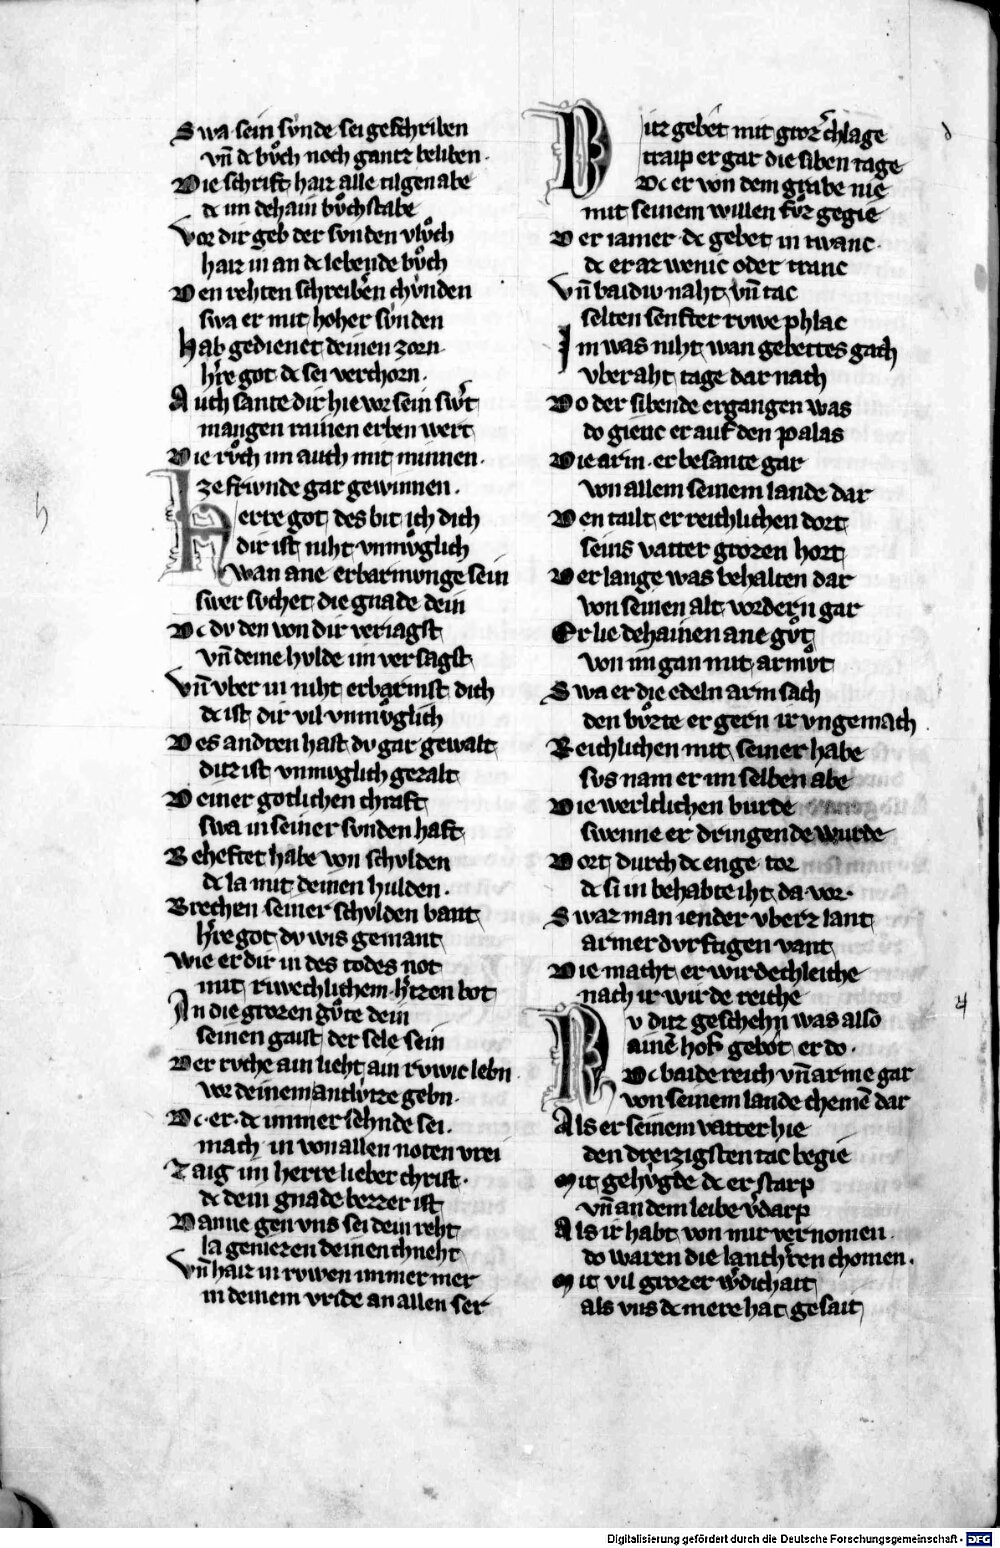 Swa sein sv̍nde sei geschriben
vn̄ dc bvͦch noch gantz beliben.
Die schrift haiz alle tilgen abe
dc im dehain bvͦchstabe
Vor dir geb der svnden vlvͦch
haiz in an dc lebende bvͦch
Den rehten schreiben chv̍nden
swa er mit hoher sv̍nden
Hab gedienet deinen zorn
h̍re got dc sei verchorn.
Auch sante dir hie vor sein sw̍t
mangen rainen erben wert
Die rvͦch im auch mit minnen.
ze friwnde gar gewinnen.
Herre got des bit ich dich
dir ist niht vnmvͦglich
Wan ane erbarmvnge sein
swer svchet die gnade dein
Dc dv den von dir veriagst
vn̄ deine hvlde im versagst
Vn̄ vber in niht erbarmst dich
dc ist dir vil vnmvͦglich
Des andren hast dv gar gewalt
ditz ist vnmvglich gezalt
Deiner gotlichen chraft
swa in seiner svnden haft
Beheftet habe von schvlden
dc la mit deinen hulden.
Brechen seiner schvlden bant
h̍re got dv wis gemant
Wie er dir in des todes not
mit riwechlichem h̍tzen bot
An die grozen gvͤte dein
seinen gaist der sele sein
Der rvche ain lieht ain rvwic lebn
vor deinem antlv̍tze gebn.
Dc er dc immer sehnde sei.
mach in von allen noten vrei
Taig im herre lieber christ.
dc dein gnade bezzer ist
Danne gen vns sei dein reht
la geniezen deinen chneht
Vn̄ haiz in rvwen immer mer
in deinem vride an allen ser
Ditz gebet mit groz̍ chlage
traip er gar die siben tage
Dc er von dem grabe nie
mit seinem willen fvͤr gegie
Der iamer dc gebet in twanc.
dc er az wenic oder tranc
Vn̄ baidiw naht vn̄ tac
selten senfter rvwe phlac
Im was niht wan gebettes gach
vber aht tage dar nach
Do der sibende ergangen was
do gienc er auf den palas
Die arm er besante gar
von allem seinem lande dar
Den tailt er reichlichen dort
seins vatter grozen hort
Der lange was behalten dar
von seinen alt vordern gar
Er lie dehainen ane gvͦt
von im gan mit armvͦt
Swa er die edeln arm sach
den bvͦzte er gern ir vngemach.
Reichlichen mit seiner habe
svs nam er im selben abe
Die werltlichen burde
swenne er dringende wurde
Dort durch dc enge tor
dc si in behabte iht da vor.
Swaz man iender vberz lant
armer dvrftigen vant
Die macht er wirdechleiche
nach ir wirde reiche
Nv ditz geschehn was also
ainē hof gebot er do.
Dc baide reich vn̄ arme gar
von seinem lande chemē dar
Als er seinem vatter hie
den dreizigsten tac begie
Mit gehv̍gde dc er starp
vn̄ an dem leibe v̍darp
Als ir habt von mir vernomen.
do waren die lanth̍ren chomen.
Mit vil grozer w̍dichait
als vns dc mere hat gesait
Digitalisierung gefördert durch die Deutsche Forschungsgemeinschaft - DFG